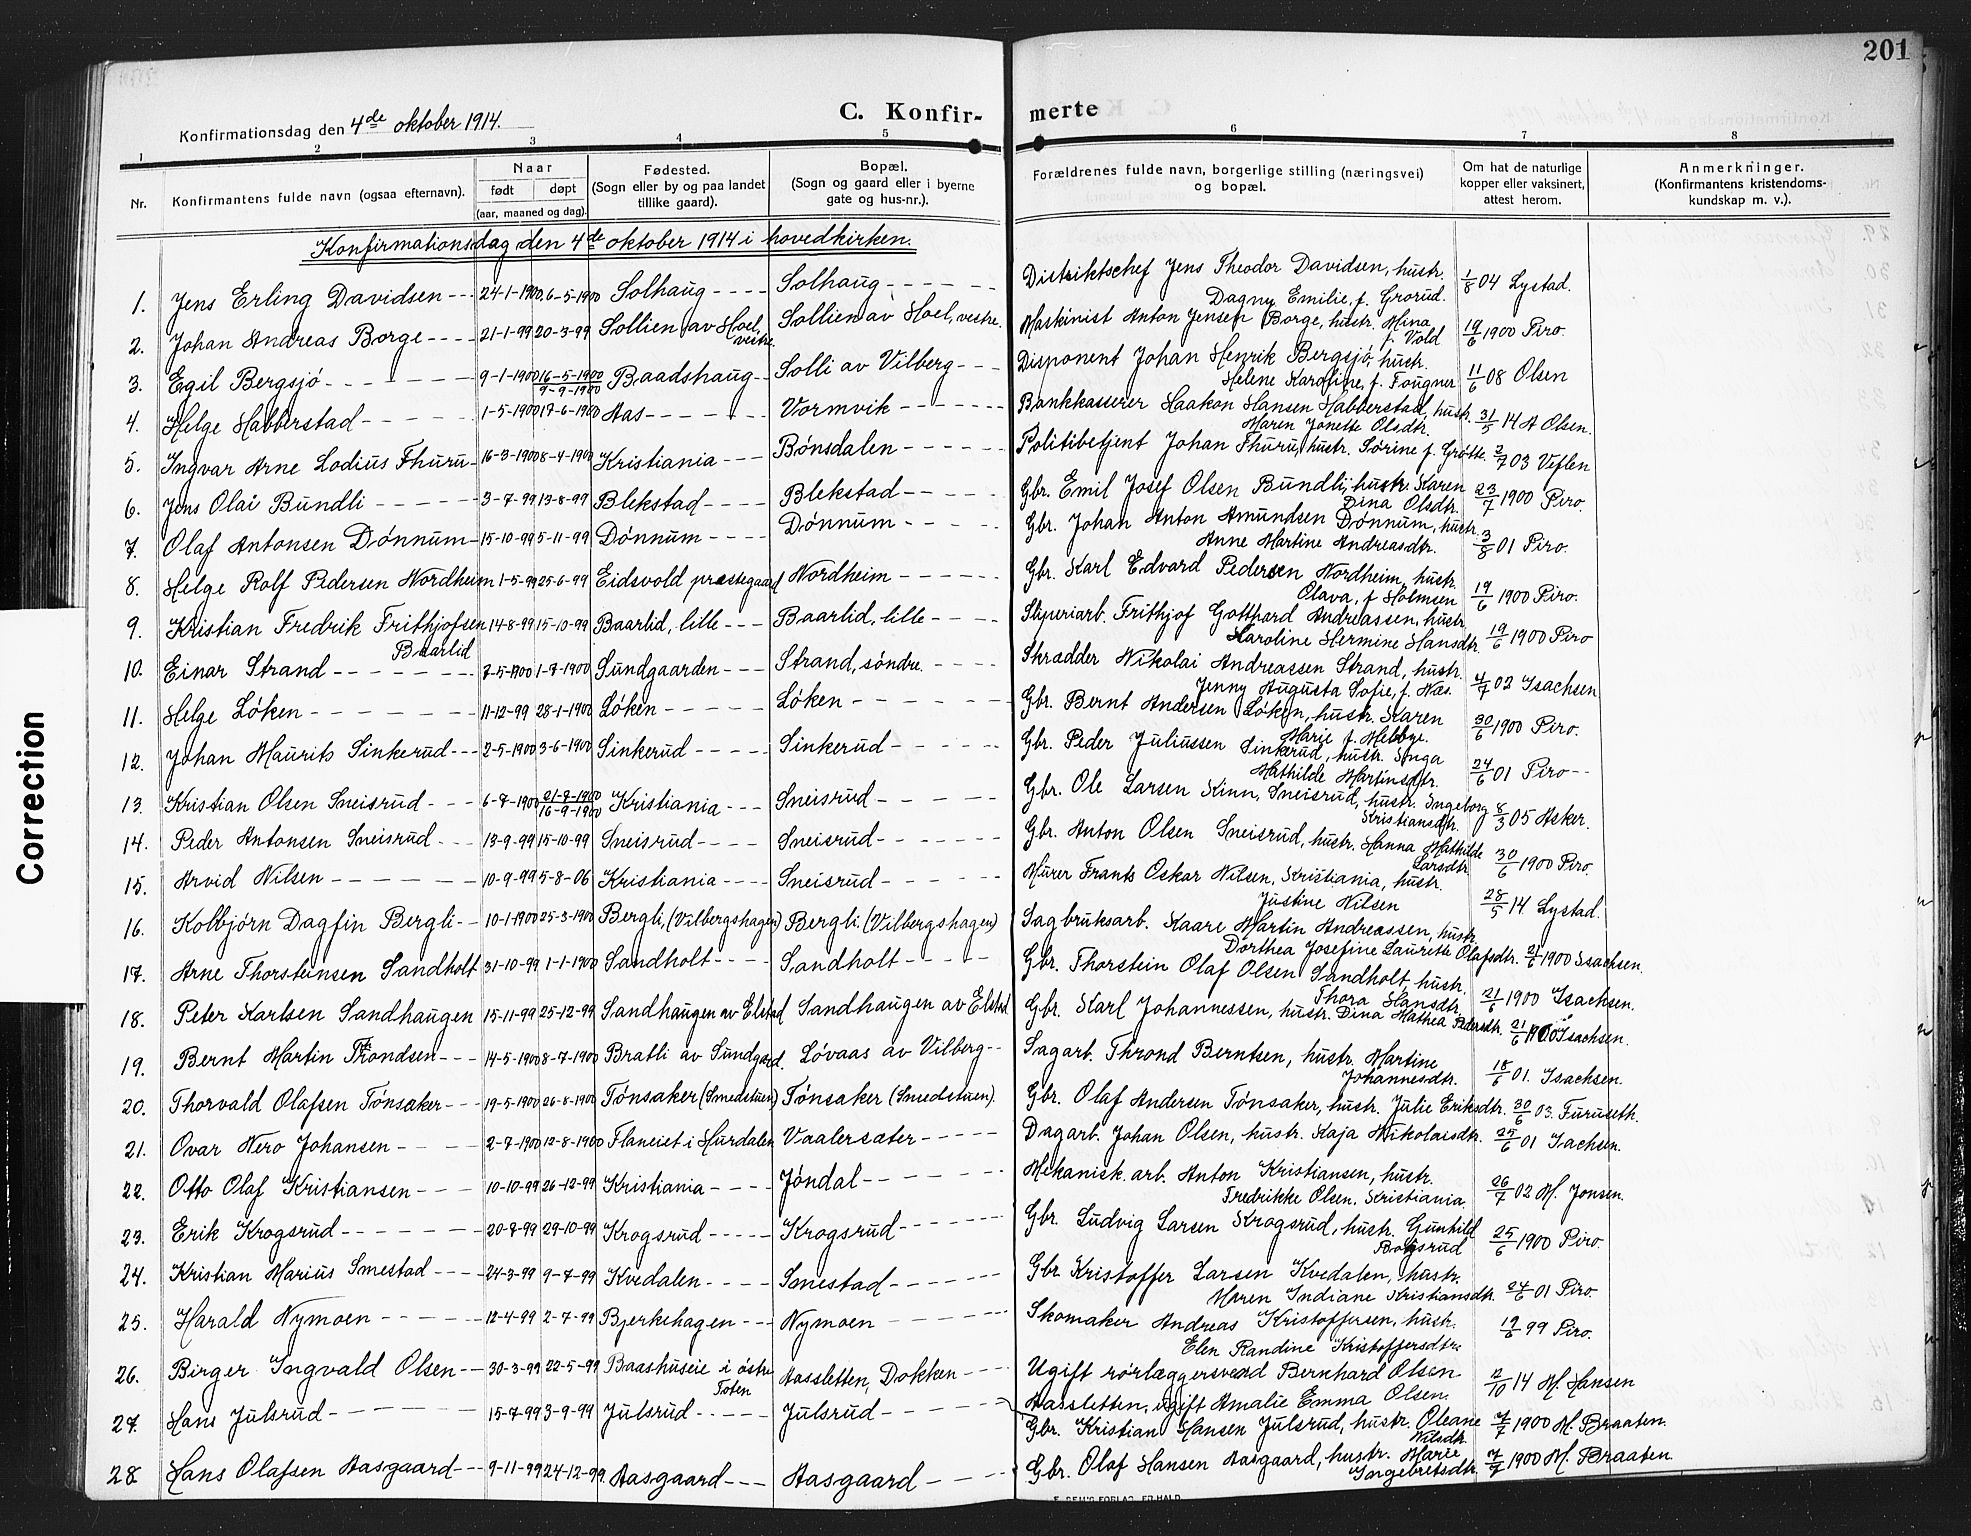 201
C. Konfir-
merte
Konfirmationsdag den 4de oktober 1914.
1 2 3 4 5 6 7 8
Nr.
Konfirmantens fulde navn (ogsaa efternavn).
Naar
født døpt
(aar, maaned og dag).
Fødested.
(Sogn eller by og paa landet
tillike gaard).
Bopæl.
(Sogn og gaard eller i byerne
gate og hus-nr.).
Forældrenes fulde navn, borgerlige stilling (næringsvei)
og bopæl.
Om hat de naturlige
kopper eller vaksinert,
attest herom.
Anmerkninger.
(Konfirmantens kristendoms-
kundskap m. v.).
Konfirmationsdag den 4de oktober 1914 i hovedkirken.
1. Jens Erling Davidsen 24-1-1900 6-5-1900 Solhaug Solhaug Distriktschef Jens Theodor Davidsen, hustr. 1/8 04 Lystad.
Dagny Emilie, f. Grorud.
2. Johan Andreas Borge 21-1-99 20-3-99 Sollien av Hoel, vestre Sollien av Hoel, vestre. Maskinist Anton Jensen Borge, hustr. Mina 19/6 1900 Piro.
f. Vold
3. Egil Bergsjó 9-1-1900 16-5-1900 Baadshaug Solli av Vilberg Disponent Johan Henrik Bergsjó, hustr. 11/6 08 Olsen
9-9-1900 Helene Karoline, f. Fougner
4. Helge Habberstad 1-5-1900 17-6-1900 Aas Vormvik Bankkasserer Haakon Hansen Habberstad, hustr. 31/5 14 A Olsen.
Maren Jonette Olsdtr.
5. Ingvar Arne Lodius Thuru 16-3-1900 8-4-1900 Kristiania Bónsdalen Politibetjent Johan Thuru, hustr. Sørine f. Grøtte. 2/7 03 Veflen
6. Jens Olai Bundli 3-7-99 13-8-99 Blekstad Blekstad Gbr. Emil Josef Olsen Bundli, hustr. Karen 23/7 1900 Piro.
Dina Olsdtr.
7. Olaf Antonsen Dónnum 15-10-99 5-11-99 Dónnum Dónnum Gbr. Johan Anton Amundsen Dónnum, hustr. 3/8 01 Piro.
Anne Martine Andreasdtr.
8. Helge Rolf Pedersen Nordheim 1-5-99 25-6-99 Eidsvold prestegaard Nordheim Gbr. Karl Edvard Pedersen Nordheim, hustr. 19/6 1900 Piro.
Olava, f. Holmsen
9. Kristian Fredrik Frithjofsen 14-8-99 15-10-99 Baarlid, lille Baarlid, lille Stiperiarb. Frithjof Gotthard Andreassen, hustr. 19/6 1900 Piro
Baarlid Karoline Hermine Hansdtr.
10. Einar Strand 7-5-1900 1-7-1900 Sundgaarden Strand, sóndre. Skrædder Nikolai Andreassen Strand, hustr. 4/7 02 Isachsen
Jenny Augusta Sofie, f. Næs.
11. Helge Lóken 11-12-99 28-1-1900 Lóken Lóken Gbr. Bernt Andersen Lóken, hustr. Karen 30/6 1900 Piro.
Marie f. Melbye.
12. Johan Maurits Sinkerud 2-5-1900 3-6-1900 Sinkerud Sinkerud Gbr. Peder Juliussen Sinkerud, hustr. Inga 24/6 01 Piro
Mathilde Martinsdtr.
13. Kristian Olsen Sneisrud 6-7-1900 21-7-1900 Kristiania Sneisrud Gbr. Ole Larsen Kinn, Sneisrud, hustr. Ingeborg 8/3 05 Asker.
16-9-1900 Kristiansdtr.
14. Peder Antonsen Sneisrud 13-9-99 15-10-99 Sneisrud Sneisrud Gbr. Anton Olsen Sneisrud, hustr. Hanna Mathilde 30/6 1900 Piro.
Larsdtr.
15. Arvid Nilsen 10-9-99 5-8-06 Kristiania Sneisrud Murer Frants Oskar Nilsen, Kristiania, hustr. 28/5 14 Lystad.
Justine Nilsen
16. Kolbjórn Dagfin Bergli 10-1-1900 25-3-1900 Bergli, (Vilbergshagen) Bergli. (Vilbergshagen) Sagbruksarb. Kaare Martin Andreassen, hustr.
Dorthea Josefine Laurette Olafsdtr. 21/6 1900 Isachsen.
17. Arne Thorsteinsen Sandholt 31-10-99 1-1-1900 Sandholt Sandholt Gbr. Thorstein Olaf Olsen Sandholt, hustr. 21/6 1900 Isachsen.
Thora Hansdtr.
18. Peter Karlsen Sandhaugen 15-11-99 25-12-99 Sandhaugen av Elstad Sandhaugen av Elstad Gbr. Karl Johannessen, hustr. Dina Mathea Pedersdtr. 21/6 1900 Isachsen.
19. Bernt Martin Throndsen 14-5-1900 8-7-1900 Bratli av Sundgaard. Lóvaas av Vilberg Sagarb. Thrond Berntsen, hustr. Martine 18/6 01. Isachsen.
Johannesdtr.
20. Thorvald Olafsen Tónsaker 19-5-1900 26-8-1900 Tónsaker (Smedstuen) Tónsaker (Smedstuen). Gbr. Olaf Andersen Tónsaker, hustr. Julie Eriksdtr. 30/6 03. Furuseth.
21. Ovar Nero Johansen 2-7-1900 12-8-1900 Flaneiet i Hurdalen Vaalersæter Dagarb. Johan Olsen, hustr. Kaja Nikolaisdtr. 25/6 01 Isachsen.
22. Otto Olaf Kristiansen 10-10-99 26-12-99 Kristiania Jóndal Mekanisk arb. Anton Kristiansen, hustr. 26/7 02 M. Jonsen.
Fredrikke Olsen. Kristiania.
23. Erik Krogsrud 20-8-99 29-10-99 Krogsrud Krogsrud Gbr. Ludvig Larsen Krogsrud, hustr. Gunhild 25/6 1900 Piro.
24. Kristian Marius Smestad 24-3-99 9-7-99 Kvedalen Smestad Gbr Kristoffer Larsen Kvedalen, hustr. 24/6 01 Piro.
Maren Indiane Kristiansdtr.
25. Harald Nymoen 12-4-99 2-7-99 Bjerkehagen Nymoen Skomaker Andreas Kristoffersen, hustr. 19/6 99 Piro.
Elen Randine Kristoffersdtr.
26. Birger Ingvald Olsen 30-3-99 22-5-99 Baashuseie i óstre Toten Aassletten, Dokken Ugift rórlæggersvend Bernhard Olsen 2/10 14 M. Hansen
Aassletten, ugift Amalie Emma Olsen.
27. Hans Julsrud 15-7-99 3-9-99 Julsrud Julsrud Gbr. Kristian Hansen Julsrud, hustr. Oleane 7/7 1900 M. Braaten.
Nilsdtr.
28 Hans Olafsen Aasgaard 9-11-99 24-12-99. Aasgaard Aasgaard Gbr. Olaf Hansen Aasgaard, hustr. Marie 7/7 1900 M. Braaten.
Ingebretsdtr.
Correction